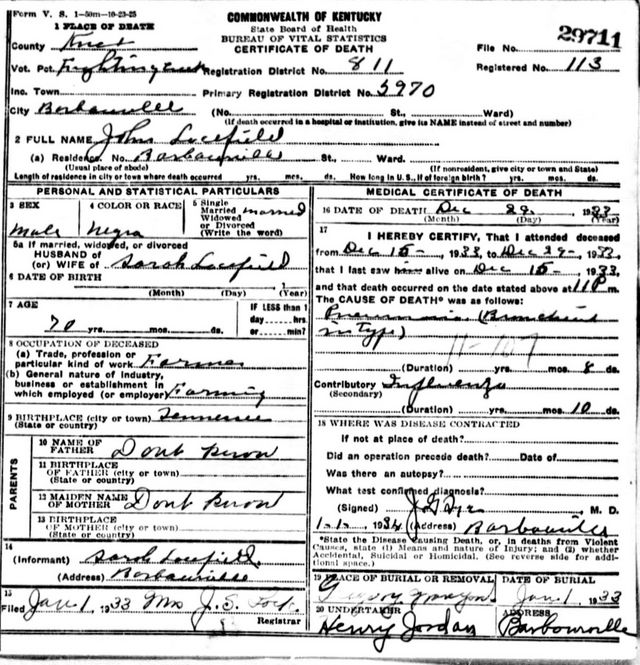 Form V. S. 1-50m-10-23-25
COMMONWEALTH OF KENTUCKY
State Board of Health
BUREAU OF VITAL STATISTICS
CERTIFICATE OF DEATH
29711
1 PLACE OF DEATH
County Knox
File No.
Vot. Pct. Fighting Creek Registration District No. 811
Registered No. 113
Inc. Town Primary Registration District No. 5970
City Barbourville (No. St., Ward)
(If death occurred in a hospital or institution, give its NAME instead of street and number)
2 FULL NAME John
(a) Residence. No. Barbourville St., Ward.
(Usual place of abode) (If nonresident, give city or town and State)
Length of residence in city or town where death occurred yrs. mos. ds. How long in U. S., if of foreign birth? yrs. mos. ds.
PERSONAL AND STATISTICAL PARTICULARS
3 SEX 4 COLOR OR RACE 5 Single Married Widowed or Divorced (Write the word) Married
Male Negro
5a If married, widowed, or divorced
HUSBAND of
(or) WIFE of Sarah
6 DATE OF BIRTH
(Month) (Day) (Year)
7 AGE IF LESS than 1
day hrs.
70 yrs. mos. ds. or min?
8 OCCUPATION OF DECEASED
(a) Trade, profession or
particular kind of work Farmer
(b) General nature of industry,
business or establishment in
which employed (or employer) Farming
9 BIRTHPLACE (city or town) Tennessee
(State or country)
PARENTS
10 NAME OF
FATHER Dont Know
11 BIRTHPLACE
OF FATHER (city or town)
(State or country)
12 MAIDEN NAME
OF MOTHER Dont Know
13 BIRTHPLACE
OF MOTHER (city or town)
(State or country)
14
(Informant) Sarah
(Address) Barbourville
15
Filed Jan 1 1933 Mrs J. S.
Registrar
MEDICAL CERTIFICATE OF DEATH
16 DATE OF DEATH Dec 29, 1933
(Month) (Day) (Year)
17
I HEREBY CERTIFY, That I attended deceased
from Dec 15- 1933, to Dec 29-, 1933,
that I last saw him alive on Dec 15- 1933,
and that death occurred on the date stated above at 11 P m.
The CAUSE OF DEATH* was as follows:
Pneumonia (Bronchial
in Type)
11-107
(Duration) yrs. mos. 8 ds.
Contributory Influenza
(Secondary)
(Duration) yrs. mos. 10 ds.
18 WHERE WAS DISEASE CONTRACTED
If not at place of death?
Did an operation precede death? Date of
Was there an autopsy?
What test confirmed diagnosis?
(Signed) M. D.
1-1-, 1934 (Address) Barbourville
*State the Disease Causing Death, or, in deaths from Violent
Causes, state (1) Means and nature of Injury; and (2) whether
Accidental, Suicidal or Homicidal. (See reverse side for addi-
tional space.)
19 PLACE OF BURIAL OR REMOVAL DATE OF BURIAL
Jan 1 1933
20 UNDERTAKER ADDRESS
Henry Jordan Barbourville